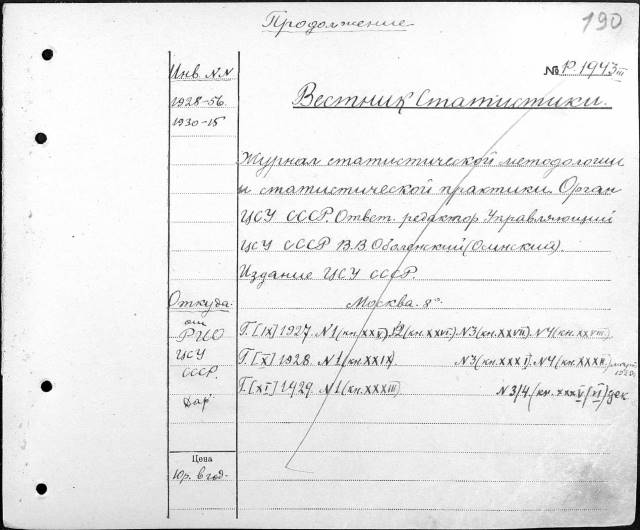 Продолжение
190
№ Р.1943 III
Инв. NN
1928-56.
1930-15
Вестник Статистики.
Журнал статистической методологии
и статистической практики. Орган
ЦСУ СССР. Ответ. редактор Управляющий
ЦСУ СССР В.В. Оболенский (Осинский).
Издание ЦСУ СССР.
Москва. 8°.
Откуда:
от
РИО
ЦСУ
СССР.
Дар
Г. [IX] 1927. N1 (кн. XXV). N2 (кн. XXVI). N3 (кн. XXVII). N4 (кн. XXVIII)
Г. [X] 1928. N1 (кн. XXIX) N3 (кн. XXXI). N4 (кн. XXXII)
Г. [XI] 1929. N1 (кн. XXXIII) N3/4 (кн. XXXV/VI) дек
Цена
10р. в год.